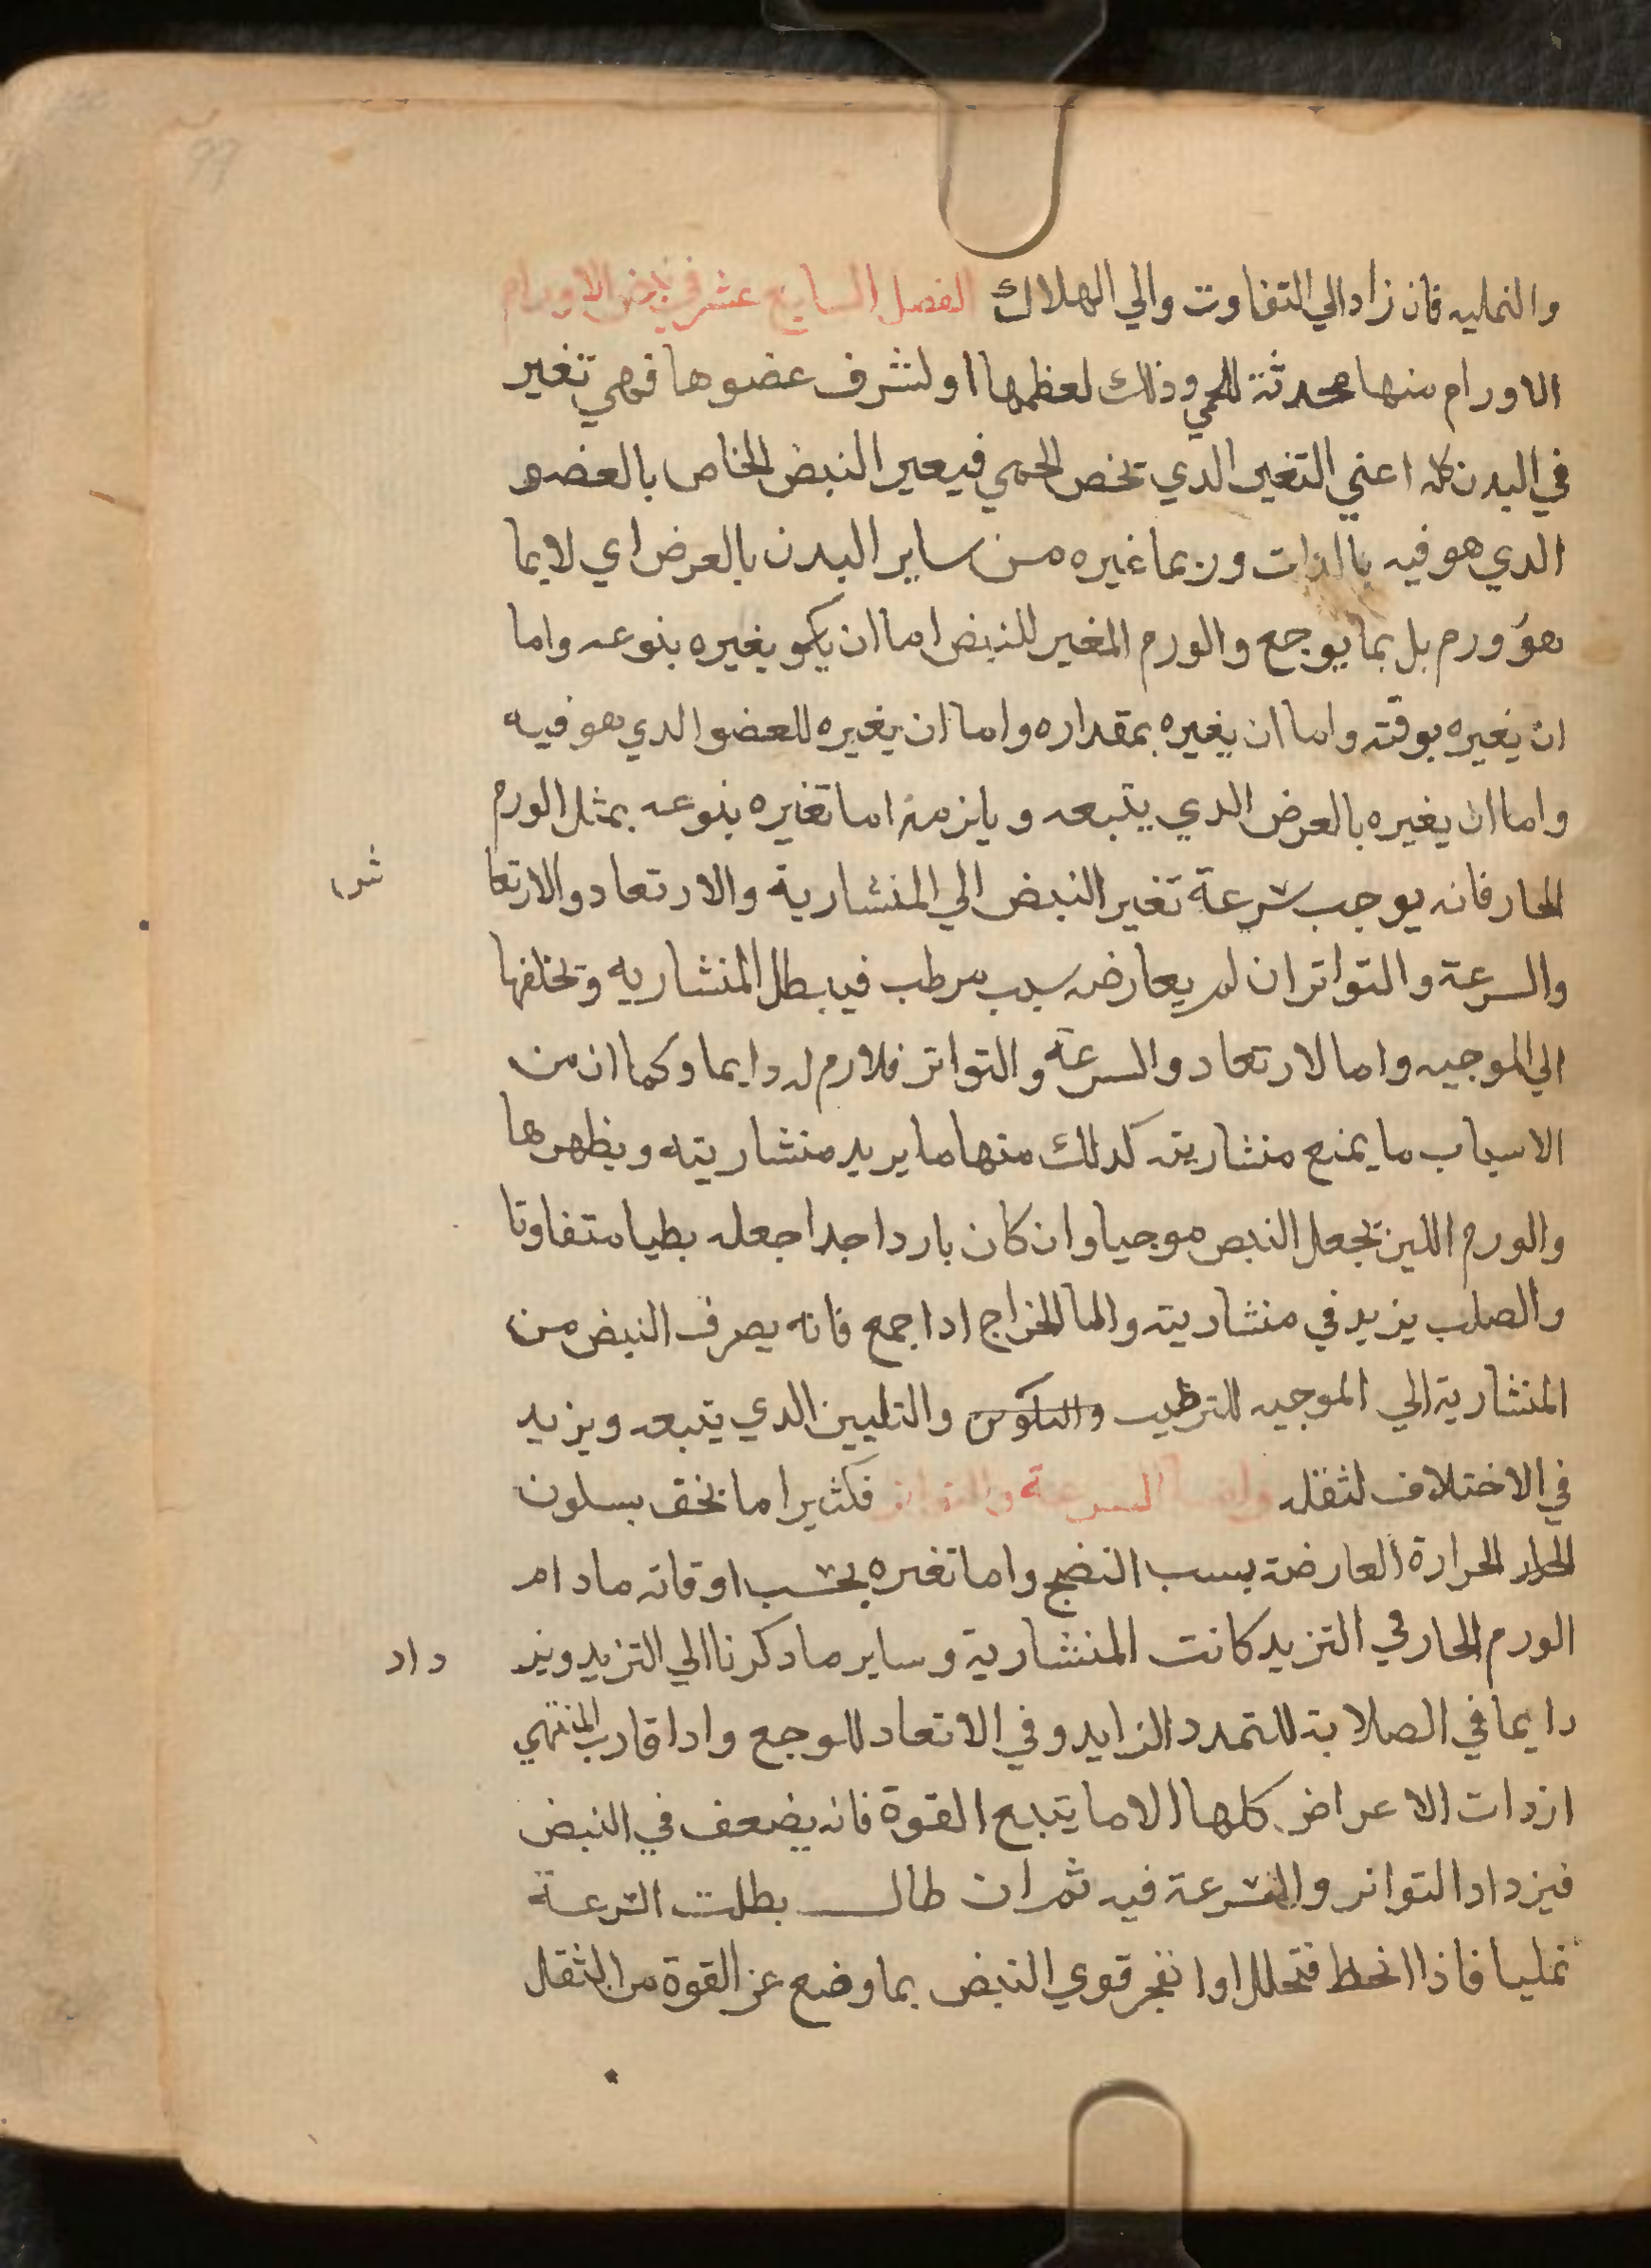 99
والنمليه فان زاد الي التفاوت والي الهلاك الفصل السابع عشر في نبض الاورام
الاورام منها محدثة للحمي وذلك لعظمها اولشرف عضوها فهي تغير
في البدن كله اعني التغير الدي تخص الحمي فيعير النبض الخاص بالعضو
الدي هو فيه بالدات وربما غيره من ساير البدن بالعرض اي لابما
هو ورم بل بما يوجع والورم المغير للنبض اما ان يكو يغيره بنوعه واما
ان يغيره بوقته واما ان يغيره بمقداره واما ان يغيره للعضو الدي هو فيه
واما ان يغيره بالعرض الدي يتبعه ويلزمه اما تغيره بنوعه بمثل الورم
الحار فانه يوجب سرعة تغير النبض الي المنشارية والارتعاد والارتعا ش
والسرعة والتواتر ان لم يعارضه سبب مرطب فيبطل المنشاريه وتخلفها
الي الموجيه واما لارتعاد والسرعة والتواتر فلارم له دايما وكما ان من
الاسباب ما يمنع منشاريته كدلك منها ما يريد منشاريته ويظهرها
والورم اللين تجعل النبص موجيا وان كان باردا جدا جعله بطيا متفاوتا
والصلب يزيد في منشاريته واما الخراج ادا جمع فانه يصرف النبض من
المنشارية الي الموجيه للترطيب والتليين الدي يتبعه ويزيد
في الاختلاف لثقله واما السرعة والتواتر فكثيرا ما يخف بسلون
الحرارة العارضة بسبب النضج واما تغيره بحسب اوقاته مادام
الورم الحار في التزيد كانت المنشارية وساير ما دكرنا الي التزيد ويز داد
دايما في الصلابة للتمدد الزايد وفي الاتعاد للوجع وادا قارب المنتهي
ازدات الاعراض كلها الا ما يتبع القوة فانه يضعف في النبض
فيزداد التواتر والسرعة فيه ثم ان طال بطلت السرعة
نمليا فاذا انحط فتحلل اوانفجر قوي النبض بما وضع عن القوة من الثقل